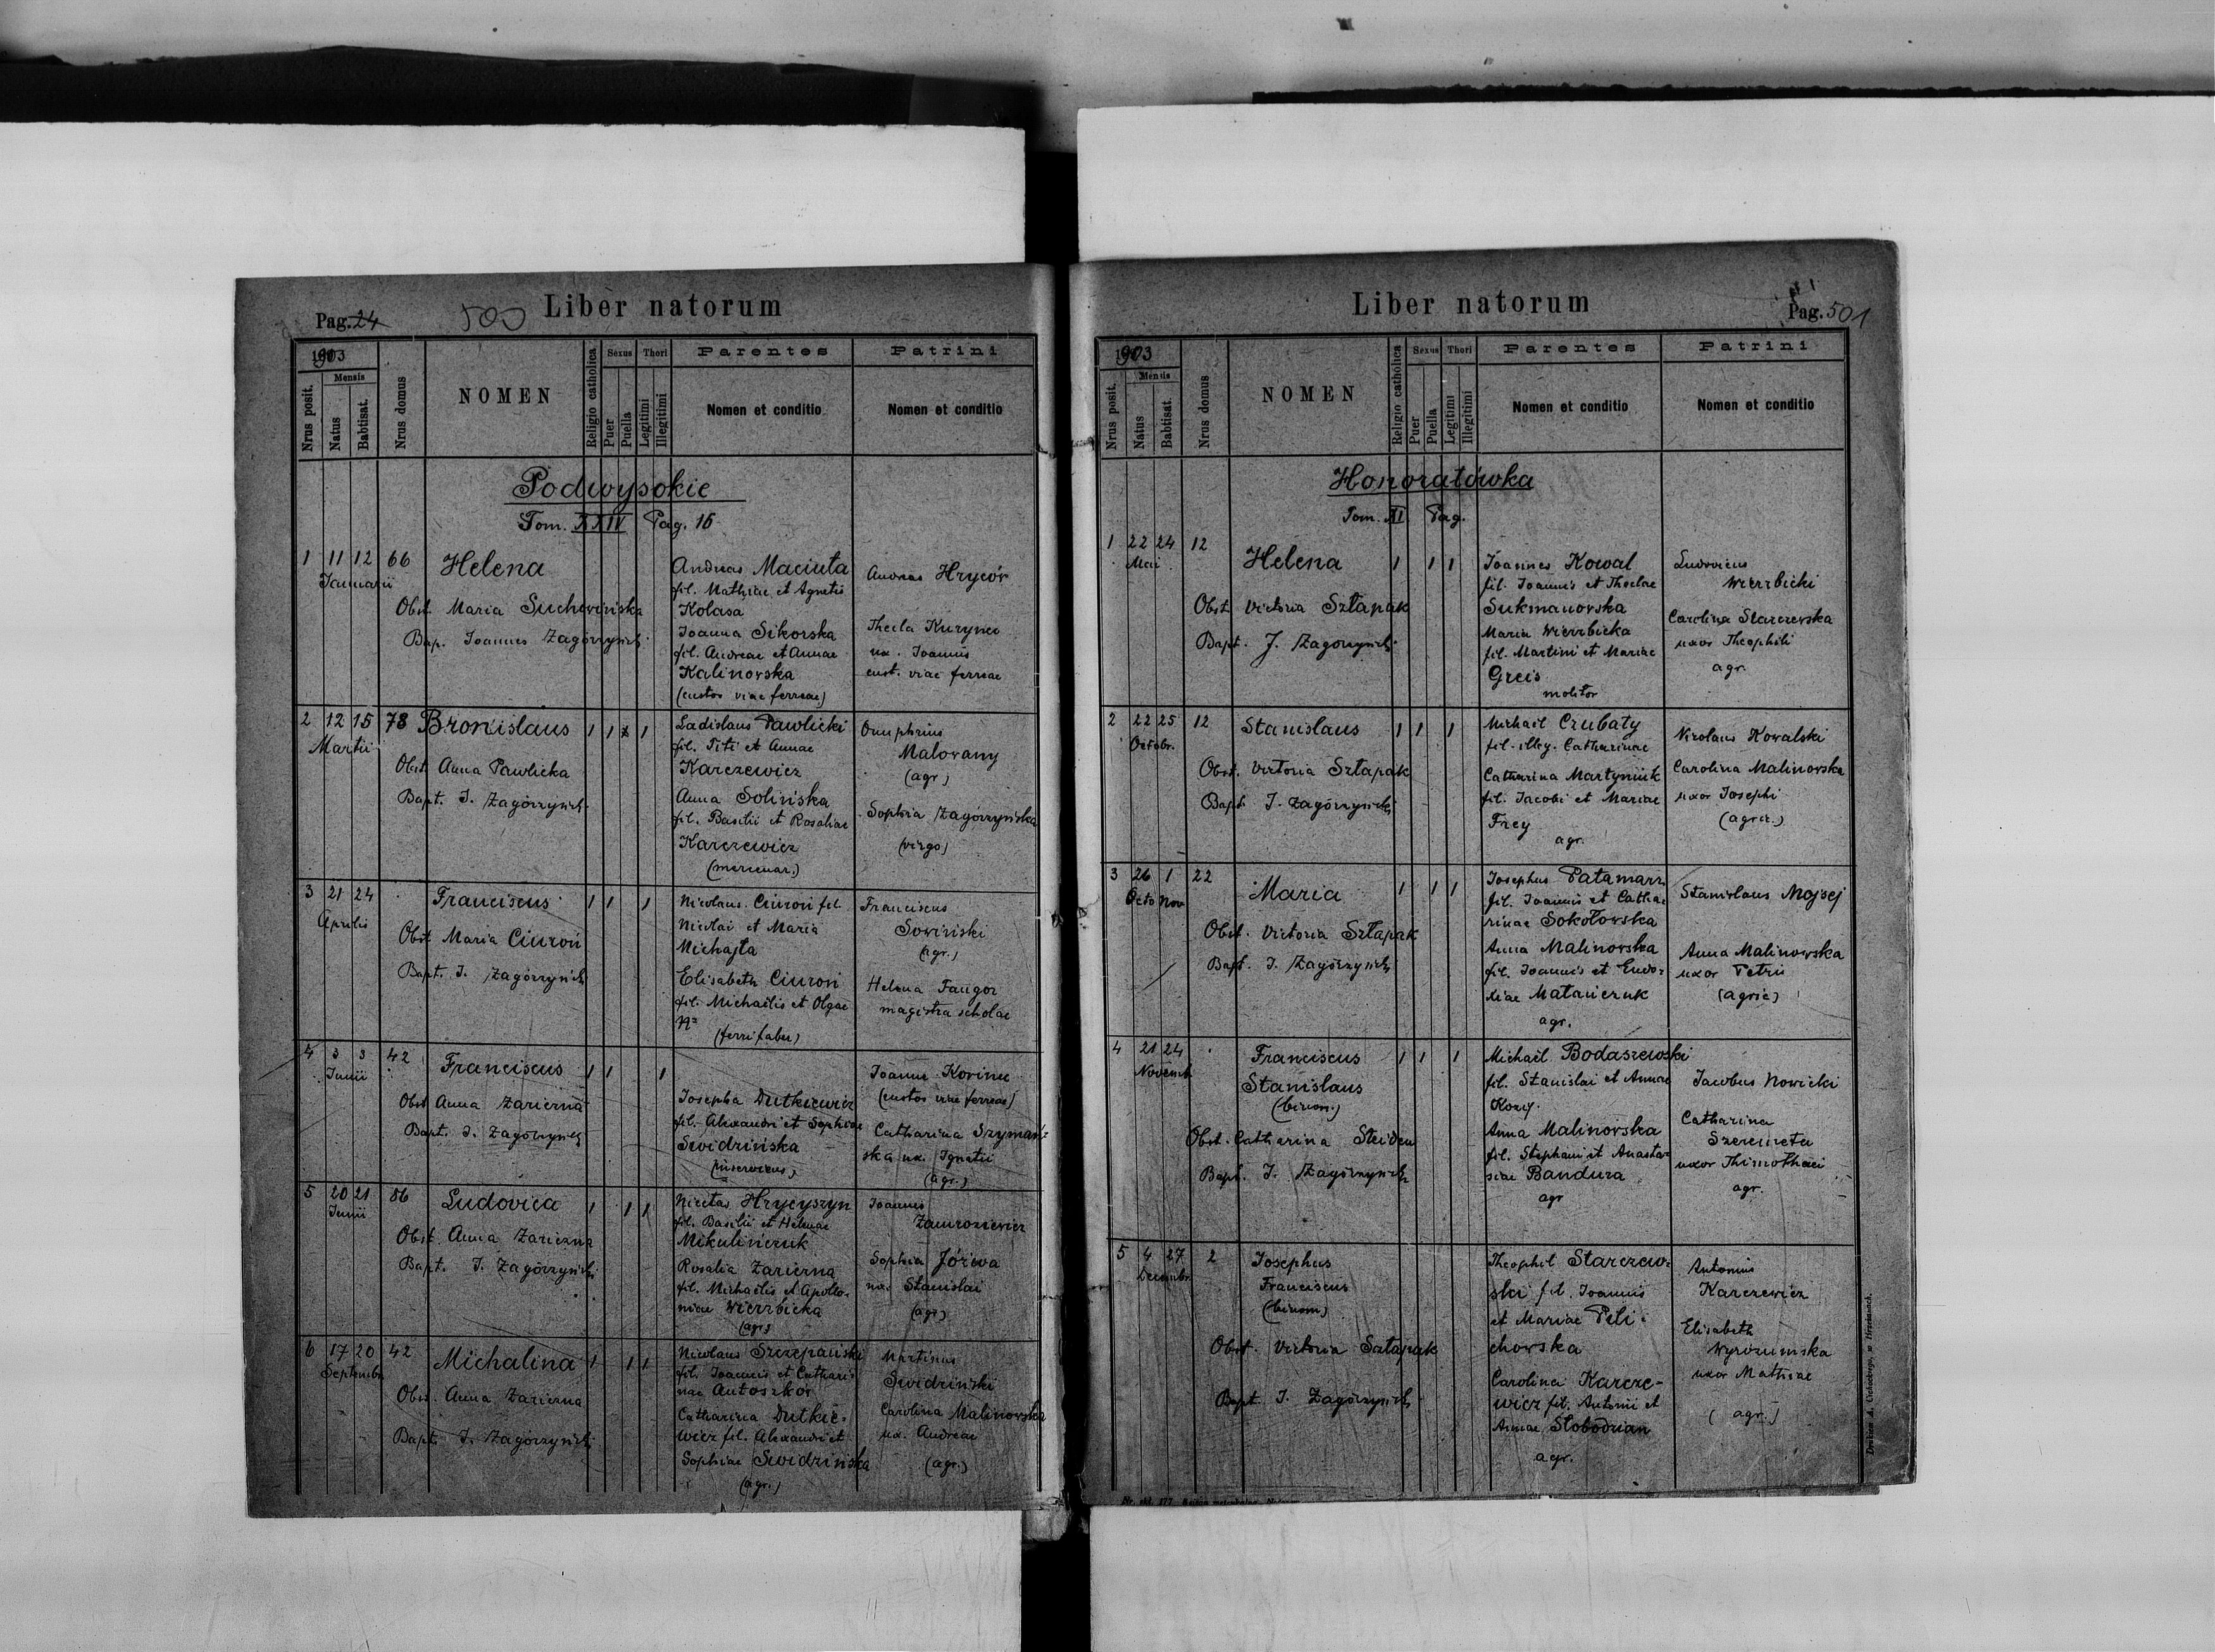 Pag. 24
500
Liber natorum
1903
Nrus posit.
Mensis
Natus
Babtisat.
Nrus domus
NOMEN
Religio catholica
Sexus
Puer
Puella
Thori
Legitimi
Illegitimi
Parentes
Nomen et conditio
Patrini
Nomen et conditio
Podwysokie
Tom. XXIV Pag. 15
1 11 12 66 Helena
Januarii
Obst. Maria Suchowińska
Bap. Joannes Zagórzyński
Andreas Maciuta
fil. Mathiae et Agnetis
Kolasa
Joanna Sikorska
fil. Andreae et Annae
Kalinowska
(custos viae ferreae)
Andreas Hrycór
Thecla Kuryneo
ux. Joannis
cust. viae ferreae
2 12 15 78 Bronislaus 1 1 1
Martii
Obst. Anna Pawlicka
Bapt. J. Zagórzyński
Ladislaus Pawlicki
fil. Titi et Annae
Karczewicz
Anna Solińska
fil. Basilii et Rosaliae
Karczewicz
(mercenar.)
Onuphrius
Malovany
(agr.)
Sophia Zagórzyńska
(virgo)
3 21 24 Franciscus 1 1 1
Aprilis
Obst. Maria Ciuroń
Bapt. J. Zagórzyński
Nicolaus Ciuroń fil.
Nicolai et Maria
Michajła
Elisabeth Ciuroń
fil. Michaelis et Olgae
N=
(ferri faber)
Franciscus
Sowiński
(agr.)
Helena Fangor
magistra scholae
4 3 3 42 Franciscus 1 1 1
Junii
Obst. Anna Zarierna
Bapt. J. Zagórzyński
Josepha Dutkiewicz
fil. Alexandri et Sophiae
Swidzińska
Joanna Korinec
(custos viae ferreae)
Catharina Szymań=
ska ux. Ignatii
(agr.)
5 20 21 86 Ludovica 1 1 1
Junii
Obst. Anna Zarierna
Bapt. J. Zagórzyński
Nicetas Hrycyszyn
fil. Basilii et Helenae
Mikulińczuk
Rosalia Zarierna
fil. Michaelis et Apollo-
niae Wierzbicka
(agr.)
Joannes
Zamroziewicz
Sophia Józwa
ux. Stanislai
(agr.)
6 17 20 42 Michalina 1 1 1
Septembr.
Obst. Anna Zarierna
Bapt. J. Zagórzyński
Nicolaus Szczepański
fil. Joannis et Cathari-
nae Antoszków
Catharina Dutkie-
wicz fil. Alexandri et
Sophiae Swidzińska
(agr.)
Martinus
Swidziński
Carolina Malinowska
ux. Andreae
(agr.)
Liber natorum
Pag. 501
1903
Nrus posit.
Mensis
Natus
Babtisat.
Nrus domus
NOMEN
Religio catholica
Sexus
Puer
Puella
Thori
Legitimi
Illegitimi
Parentes
Nomen et conditio
Patrini
Nomen et conditio
Honoratówka
Tom. XI Pag.
1 22 24 12 Helena 1 1 1
Maii
Obst. Victoria Sztapak
Bapt. J. Zagórzyński
Joannes Kowal
fil. Joannis et Theclae
Sukmanowska
Maria Wierzbicka
fil. Martini et Mariae
Greis
molitor
Ludovicus
Wierzbicki
Carolina Starczewska
uxor Theophili
agr.
2 22 25 12 Stanislaus 1 1 1
Octobr.
Obst. Victoria Sztapak
Bapt. J. Zagórzyński
Michael Czubaty
fil. illeg. Catharinae
Catharina Martyniuk
fil. Jacobi et Mariae
Frey
agr.
Nicolaus Kowalski
Carolina Malinowska
uxor Josephi
(agric.)
3 26 1 22 Maria 1 1 1
Octo Nov.
Obst. Victoria Sztapak
Bapt. J. Zagórzyński
Josephus Patamarz
fil. Joannis et Catha-
rinae Sokołowska
Anna Malinowska
fil. Joannis et Eudo-
xiae Matanczuk
agr.
Stanislaus Mojsej
Anna Malinowska
uxor Petri
(agric)
4 21 24 Franciscus 1 1 1
Novemb.
Stanislaus
(binom.)
Obst. Catharina Steiden
Bapt. J. Zagórzyński
Michael Bodaszewski
fil. Stanislai et Annae
Kozij
Anna Malinowska
fil. Stephani et Anasta-
siae Bandura
agr
Jacobus Nowicki
Catharina
Szeremeta
uxor Thimothaei
agr.
5 4 27 2 Josephus
Decembr.
Franciscus
(binom)
Obst. Victoria Sztapak
Bapt. J. Zagórzyński
Theophil Starczew-
ski fil. Joannis
et Mariae Peli-
chowska
Carolina Karcze-
wicz fil. Antonii et
Annae Słobodzian
agr.
Antonius
Karczewicz
Elisabeth
Wyrozumska
uxor Mathiae
(agr.)